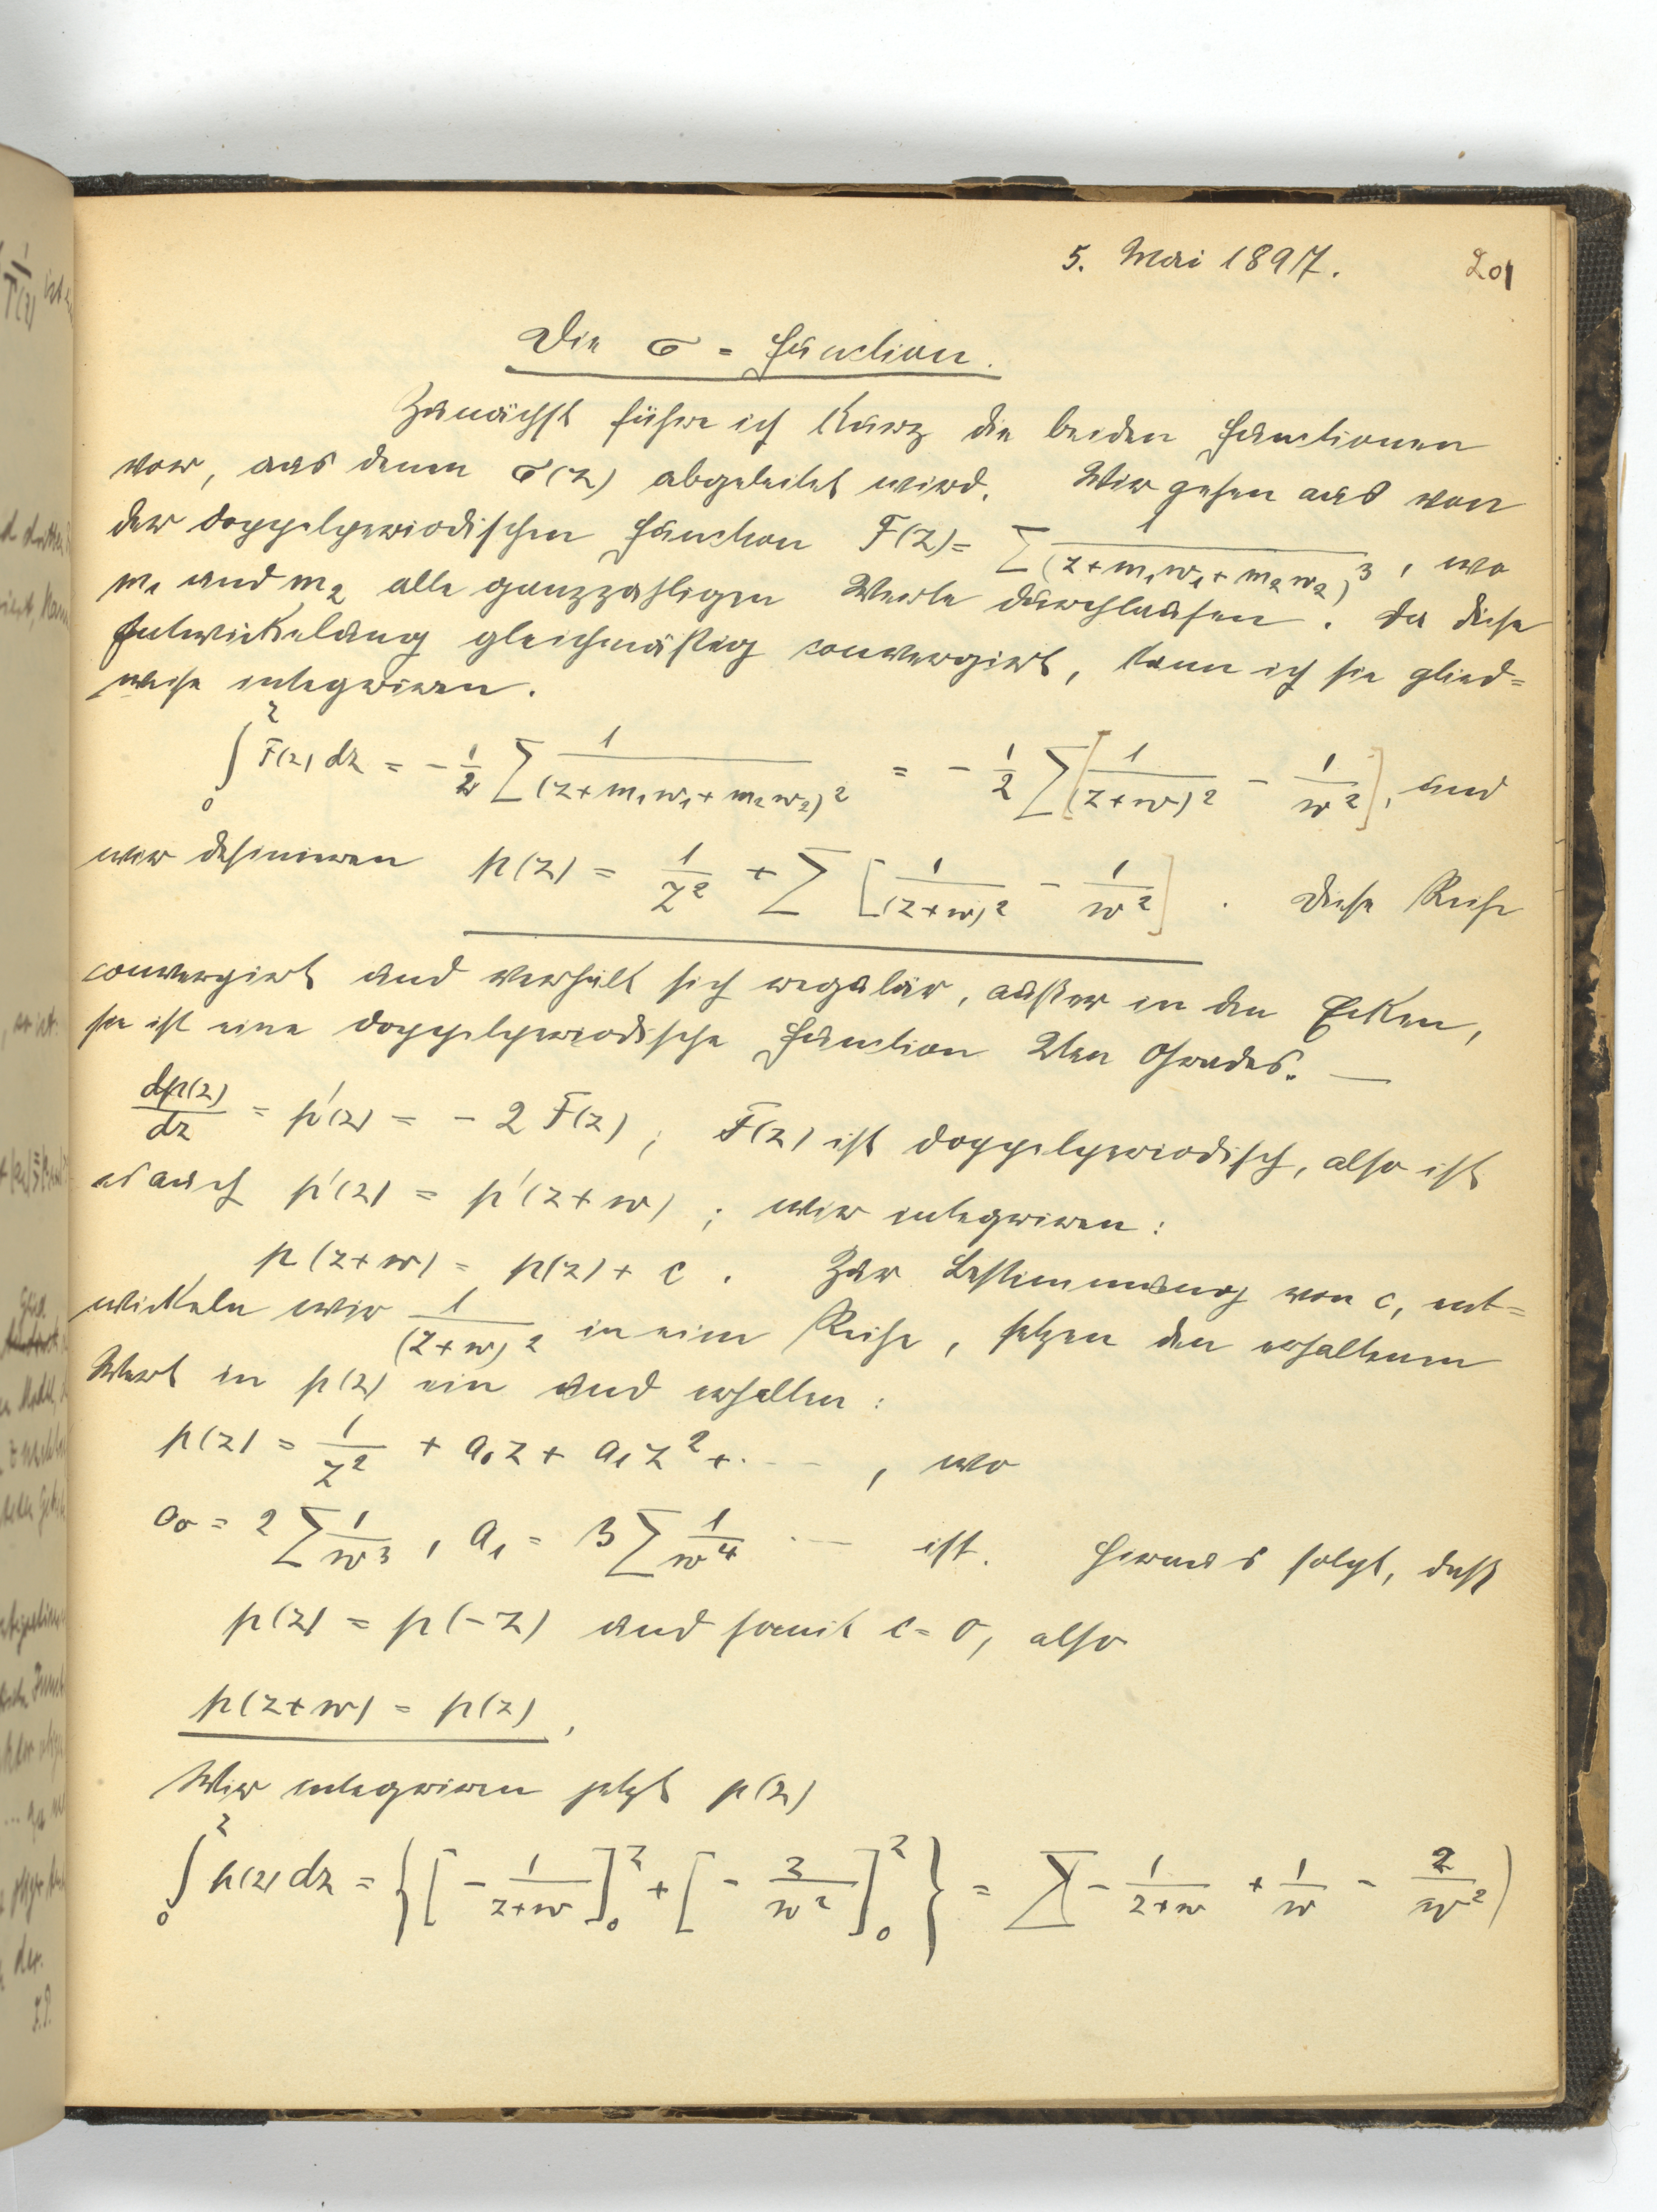 5. Mai 1897. 201
Die σ = Function.
Zunächst führe ich kurz die beiden Functionen
vor, aus denen σ(z) abgeleitet wird. Wir gehen aus von
der doppelperiodischen Function F(z) = ∑ 1/(z+m₁w₁+m₂w₂)³, wo
m₁ und m₂ alle ganzzahligen Werte durchlaufen. Da diese
Entwickelung gleichmäßig convergirt, kann ich sie glied=
weise integriren.
∫₀ᶻ F(z) dz = - 1/2 ∑ 1/(z+m₁w₁+m₂w₂)² = - 1/2 ∑ [1/(z+w)² - 1/w²], und
wir definieren p(z) = 1/z² + ∑ [1/(z+w)² - 1/w²]. Diese Reihe
convergirt und verhält sich regulär, außer in den Ecken,
sie ist eine doppelperiodische Function 2ten Grades. —
dp(z)/dz = p'(z) = - 2 F(z); F(z) ist doppelperiodisch, also ist
es auch p'(z) = p'(z+w); wir integriren:
p(z+w) = p(z) + c. Zur Bestimmung von c, ent=
wickeln wir 1/(z+w)² in eine Reihe, setzen den erhaltenen
Wert in p(z) ein und erhalten:
p(z) = 1/z² + a₀z + a₁z² + ..., wo
a₀ = 2 ∑ 1/w³, a₁ = 3 ∑ 1/w⁴ ... ist. Hieraus folgt, daß
p(z) = p(-z) und somit c = 0, also
p(z+w) = p(z),
Wir integriren jetzt p(z)
∫₀ᶻ p(z) dz = {[- 1/(z+w)]₀ᶻ + [- z/w²]₀ᶻ} = ∑(- 1/(z+w) + 1/w - z/w²)